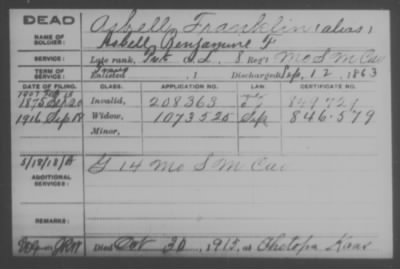 DEAD
NAME OF SOLDIER: Asbell, Franklin (alias)
Asbell Benjamine F
SERVICE: Late rank, Pvt Co. L. 8 Reg't Mo S M Cav
TERM OF SERVICE: Enlisted , 1 Discharged Sep, 12, 1863
DATE OF FILING. CLASS. APPLICATION NO. LAW. CERTIFICATE NO.
1875 Sep 20 Invalid, 208363 149721
1916 Sep 18 Widow, 1073525 Sep 846.579
Minor,
ADDITIONAL SERVICES: G 14 Mo S M Cav
REMARKS:
Died Oct 30, 1915, at Chetopa Kans